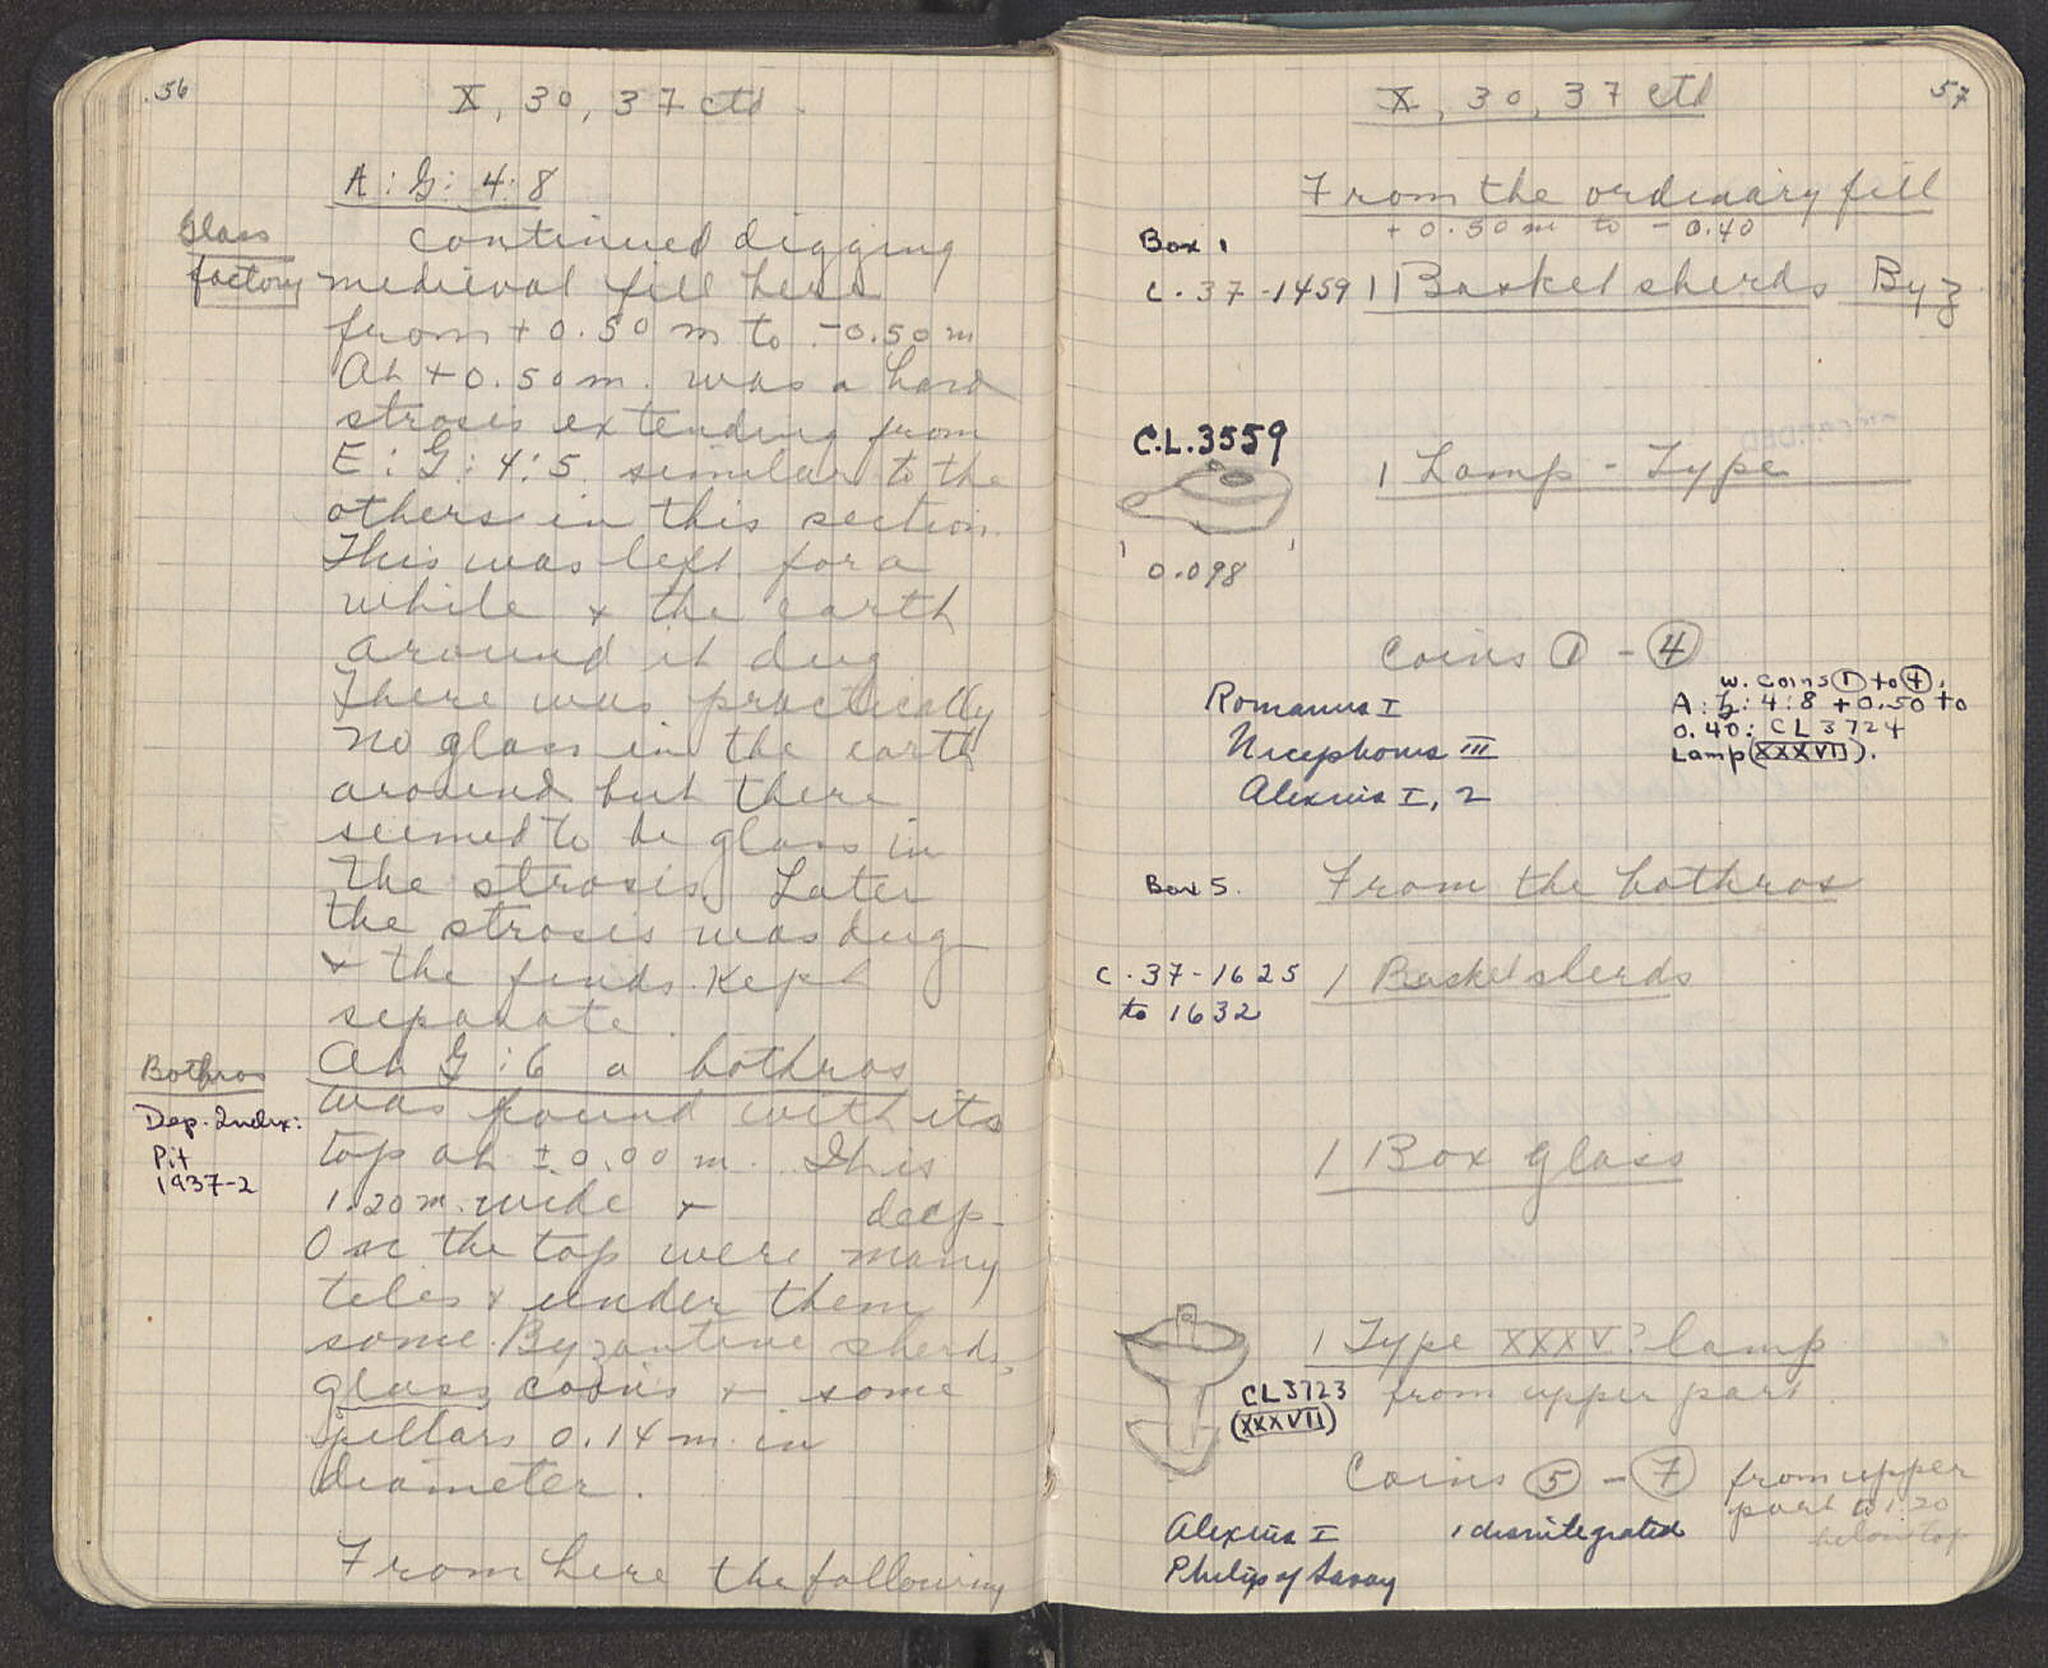 56
X, 30, 37 ctd.
A : G : 4 : 8
Glass
factory
continued digging
medieval fill here
from + 0.50 m to -0.50 m
At + 0.50 m. was a hard
strosis extending from
E : G : 4 : 5 similar to the
others in this section.
This was left for a
while & the earth
around it dug
There was practically
no glass in the earth
around but there
seemed to be glass in
the strosis. Later
the strosis was dug
& the finds kept
separate.
Bothros
Dep. Index:
Pit
1937-2
At G : 6 a bothros
was found with its
top at ± 0.00 m. This
1.20 m. wide & deep.
On the top were many
tiles & under them
some Byzantine sherds,
glass, coins & some
pillars 0.14 m in
diameter.
From here the following
57
X, 30, 37 ctd
From the ordinary fill
+ 0.50 m to - 0.40
Box 1
C. 37 - 1459 1 Basket sherds Byz
C.L. 3559
1 Lamp - Type
0.098
Coins ① - ④
Romanus I
Nicephorus III
Alexius I, 2
w. coins ① to ④.
A : G : 4 : 8 + 0.50 to
0.40 : CL 3724
Lamp (XXXVII).
Box 5. From the bothros
C. 37 - 1625 1 Basket sherds
to 1632
1 Box glass
1 Type XXXV? lamp
from upper part.
CL 3723
(XXXVII)
Coins ⑤ - ⑦ from upper
part to 1.20
below top
Alexius I 1 disintegrated
Philip of Savoy